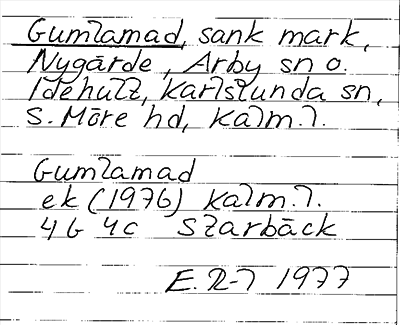 Gumlamad, sank mark,
Nygärde, Arby sn o.
Idehult, Karlslunda sn,
S. Möre hd, Kalm. l.
Gumlamad
ek (1976) Kalm. l.
4 G 4c Slarbäck
E. 1977